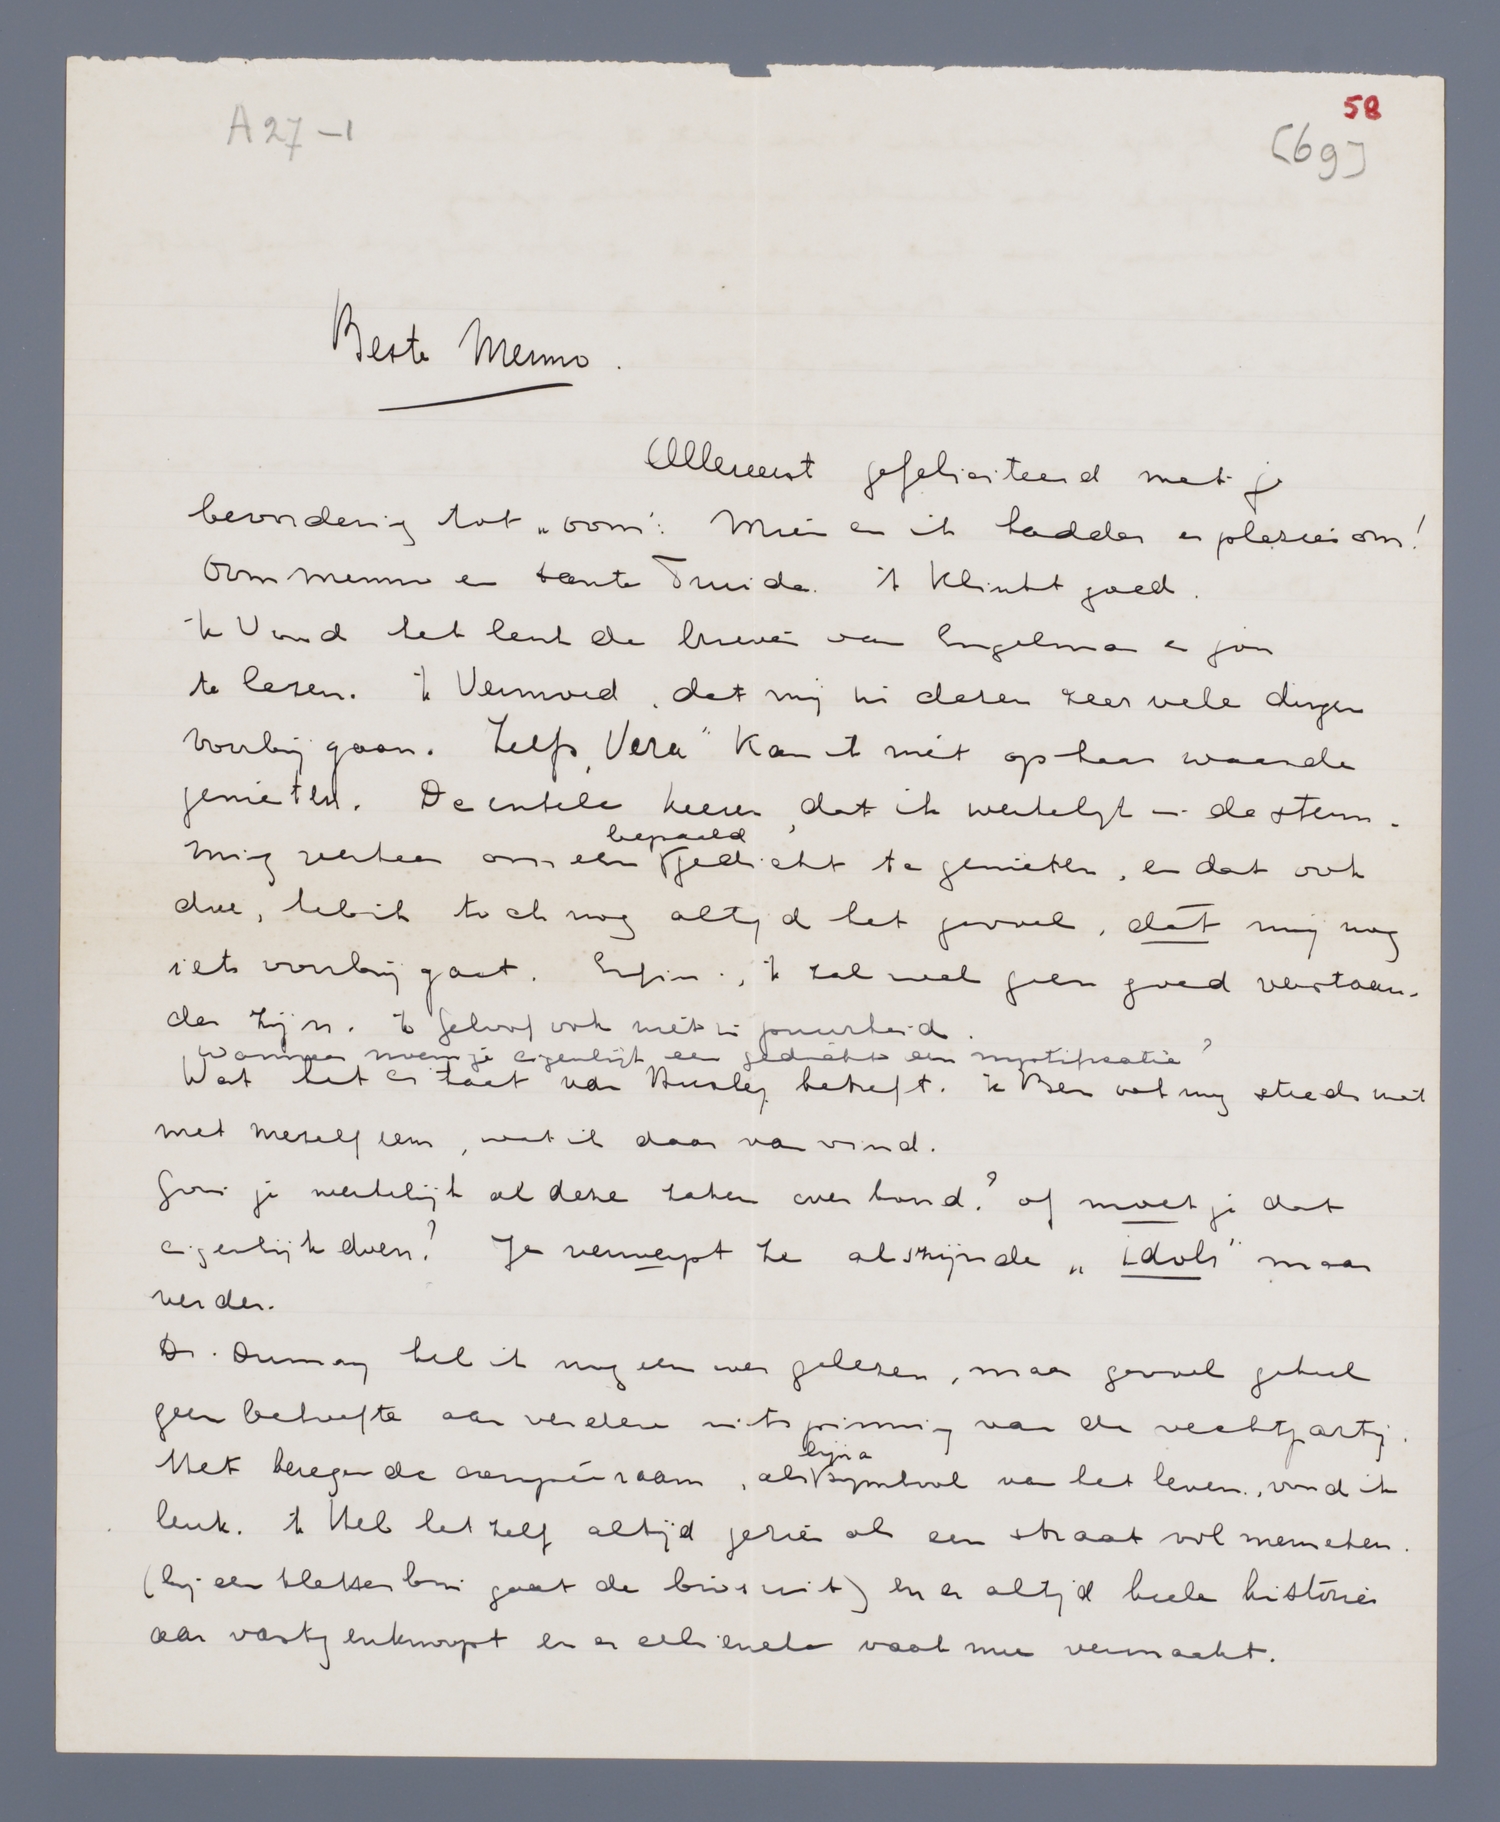 58
A27-1
[69]
Beste Menno.
Allereerst gefeliciteerd met je
bevordering tot „oom". Mien en ik hadden er plezier om!
Oom Menno en tante Truida. 't Klinkt goed.
'k Vond het leuk de brieven van Engelman en
te lezen. 'k Vermoed, dat mij in dezen zeer vele dingen
voorbij gaan. Zelfs „Vera" kan ik niet op haar waarde
genieten. De enkele keeren, dat ik werkelijk in de stem-
ming verkeer om een bepaald gedicht te genieten, en dat ook
doe, heb ik toch nog altijd het gevoel, dat mij nog
iets voorbij gaat. Enfin, 'k zal wel geen goed verstaan-
der zijn. 'k Geloof ook niet in puurheid.
Wanneer noem je eigenlijk een gedicht een mystificatie?
Wat het citaat van Huxley betreft. 'k Ben ook nog steeds niet
met mezelf eens, wat ik daar van vind.
Gooi je werkelijk al deze zaken over boord? of moet je dat
eigenlijk doen? Je verwerpt ze als zijnde „idols" maar
verder.
Dr. Dumay heb ik nog eens over gelezen, maar gevoel geheel
geen behoefte aan verdere uitspinning van de vechtpartij.
Het beregende coupéraam, als bijna symbool van het leven, vond ik
leuk. 'k Heb het zelf altijd gezien als een straat vol menschen.
(bij een gaat de uit) en er altijd heele histories
aan vastgeknoopt en er ellenel vaak mee vermaakt.